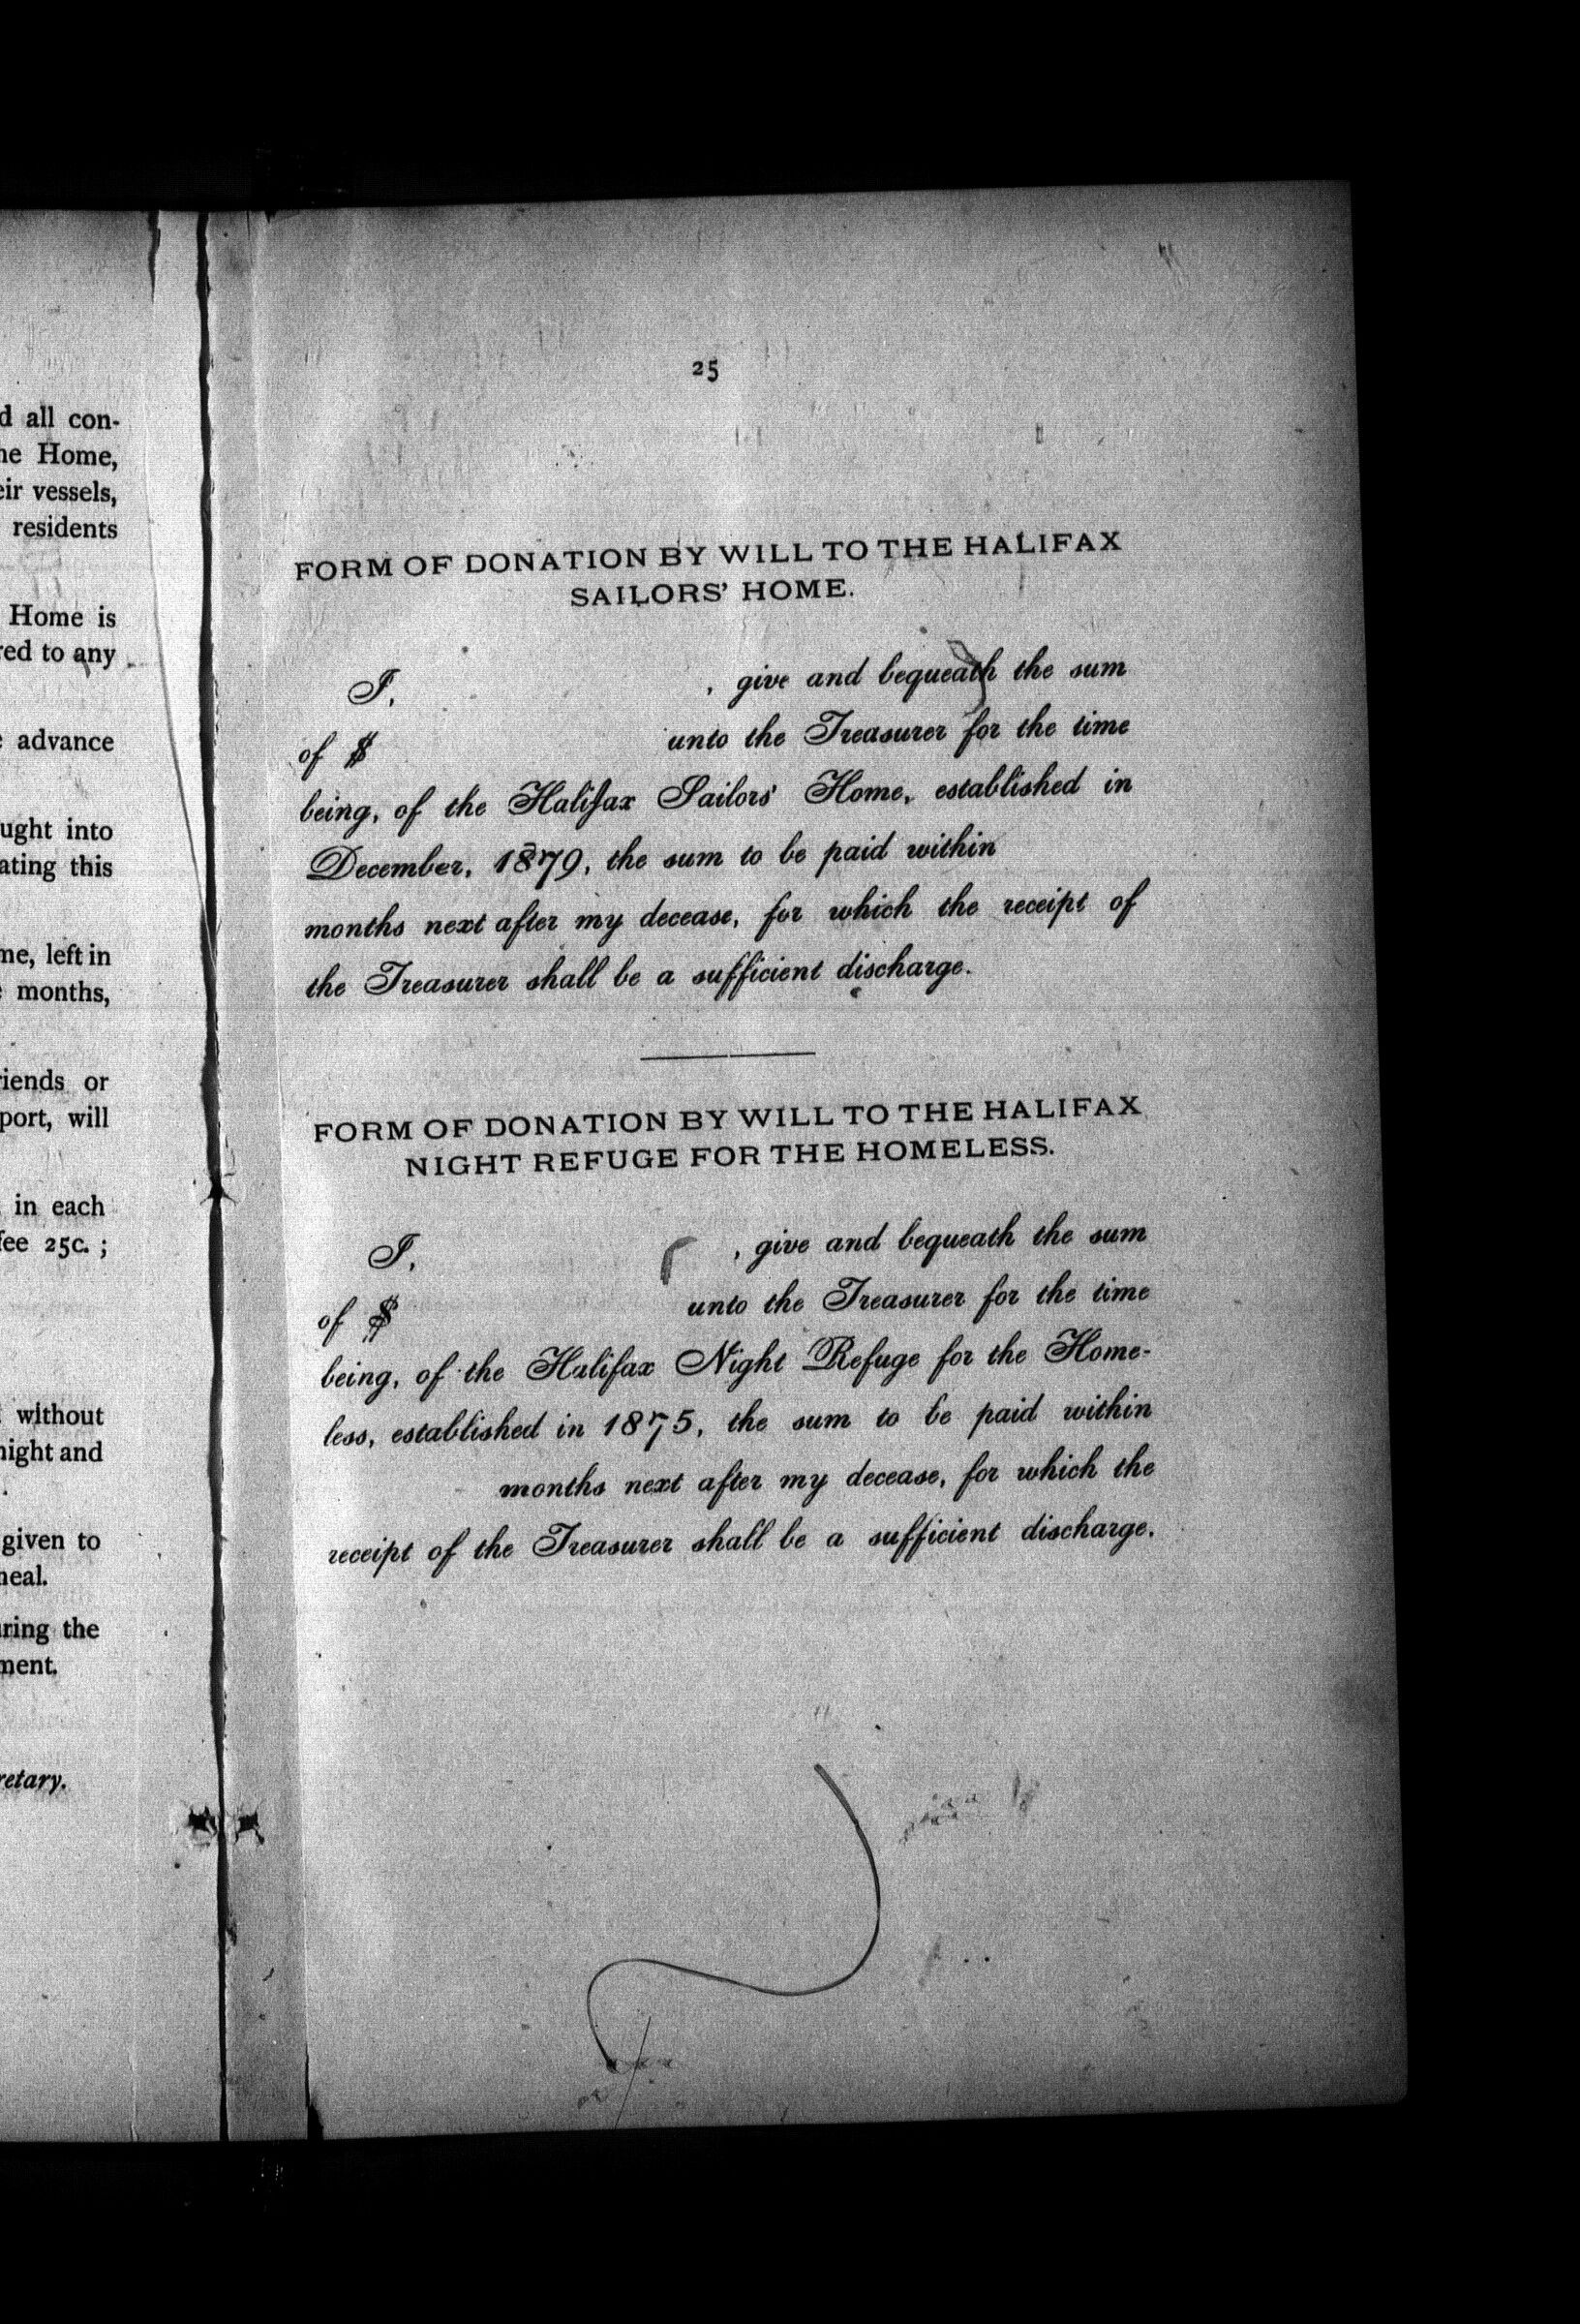 d all con-
ne Home,
eir vessels,
residents
Home is
red to any
advance
ught into
ating this
me, left in
months,
riends or
port, will
in each
fee 25c. ;
without
night and
given to
neal.
uring the
ment.
retary.
25
FORM OF DONATION BY WILL TO THE HALIFAX
SAILORS' HOME.
I, , give and bequeath the sum
of $ unto the Treasurer for the time
being, of the Halifax Sailors' Home, established in
December, 1879, the sum to be paid within
months next after my decease, for which the receipt of
the Treasurer shall be a sufficient discharge.
FORM OF DONATION BY WILL TO THE HALIFAX
NIGHT REFUGE FOR THE HOMELESS.
I, , give and bequeath the sum
of $ unto the Treasurer for the time
being, of the Halifax Night Refuge for the Home-
less, established in 1875, the sum to be paid within
months next after my decease, for which the
receipt of the Treasurer shall be a sufficient discharge.